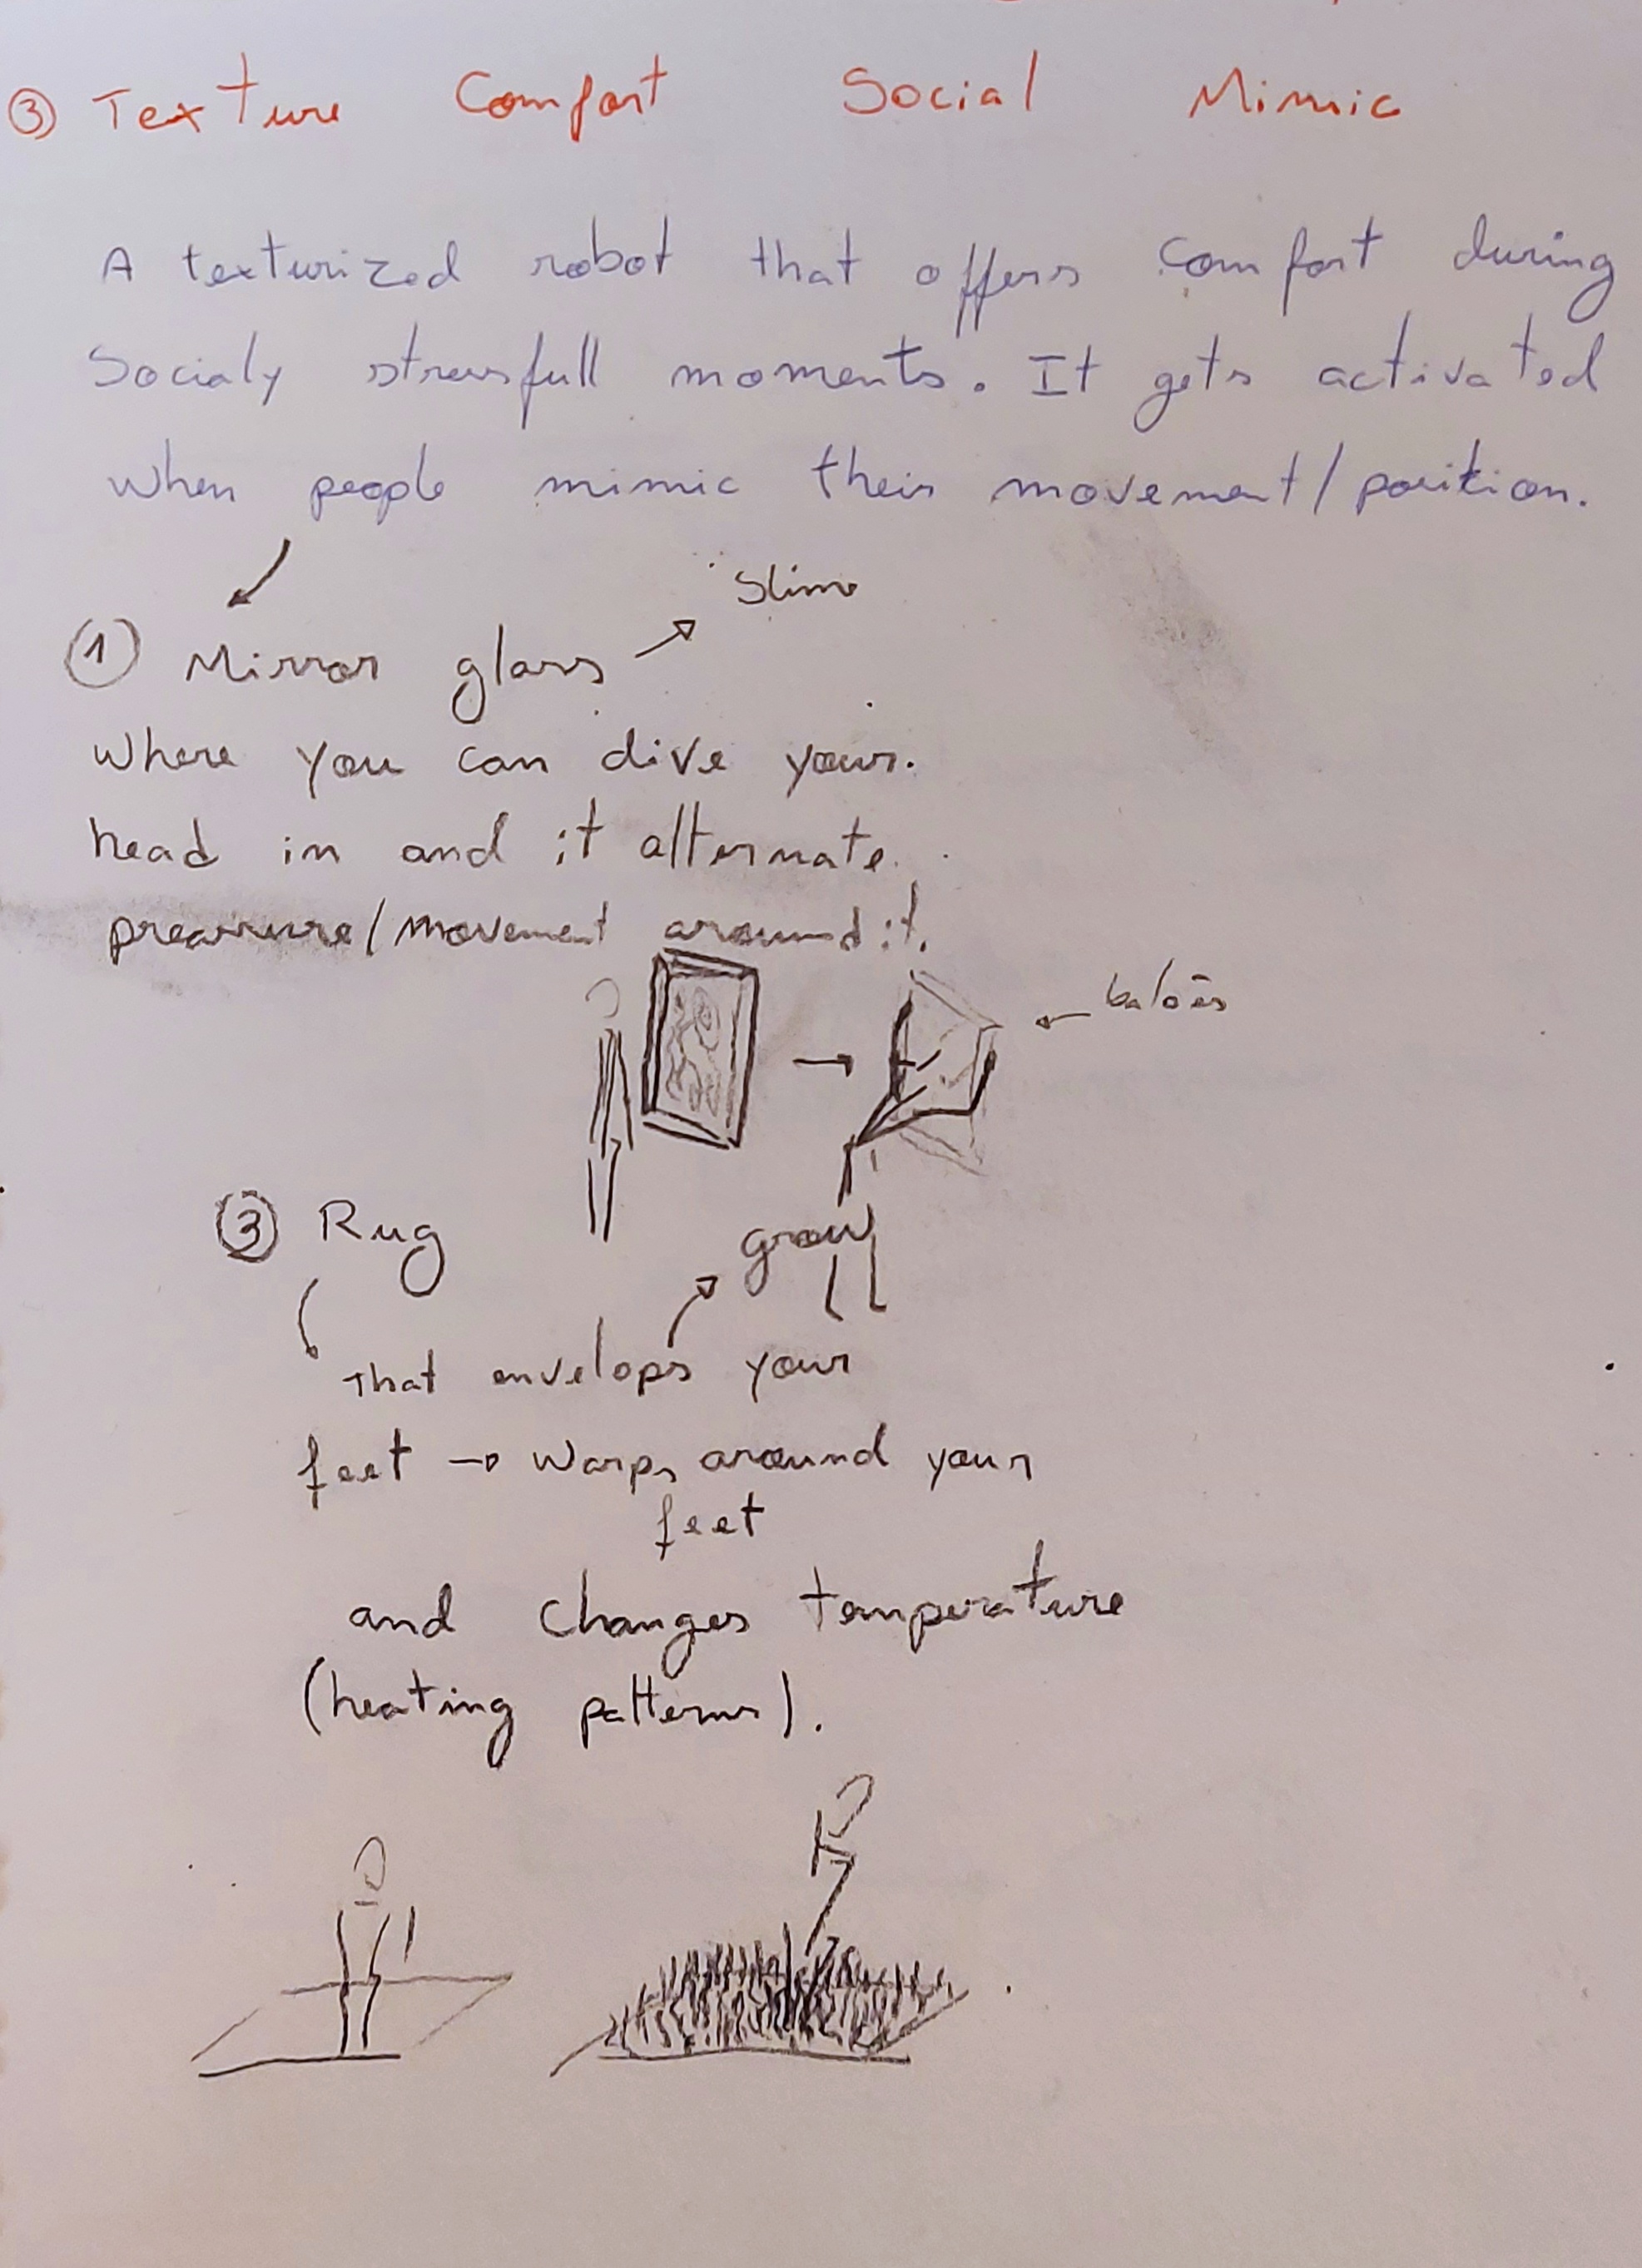 ③ Texture Comfort Social Mimic
A texturized robot that offers comfort during
Socialy stressfull moments. It gets activated
when people mimic their movement/position.
Slime
① Mirror glass
where you can dive your
head in and it alternate
preassure/movement around it.
balões
③ Rug
grow
That envelops your
feet → warps around your
feet
and changes temperature
(heating patterns).